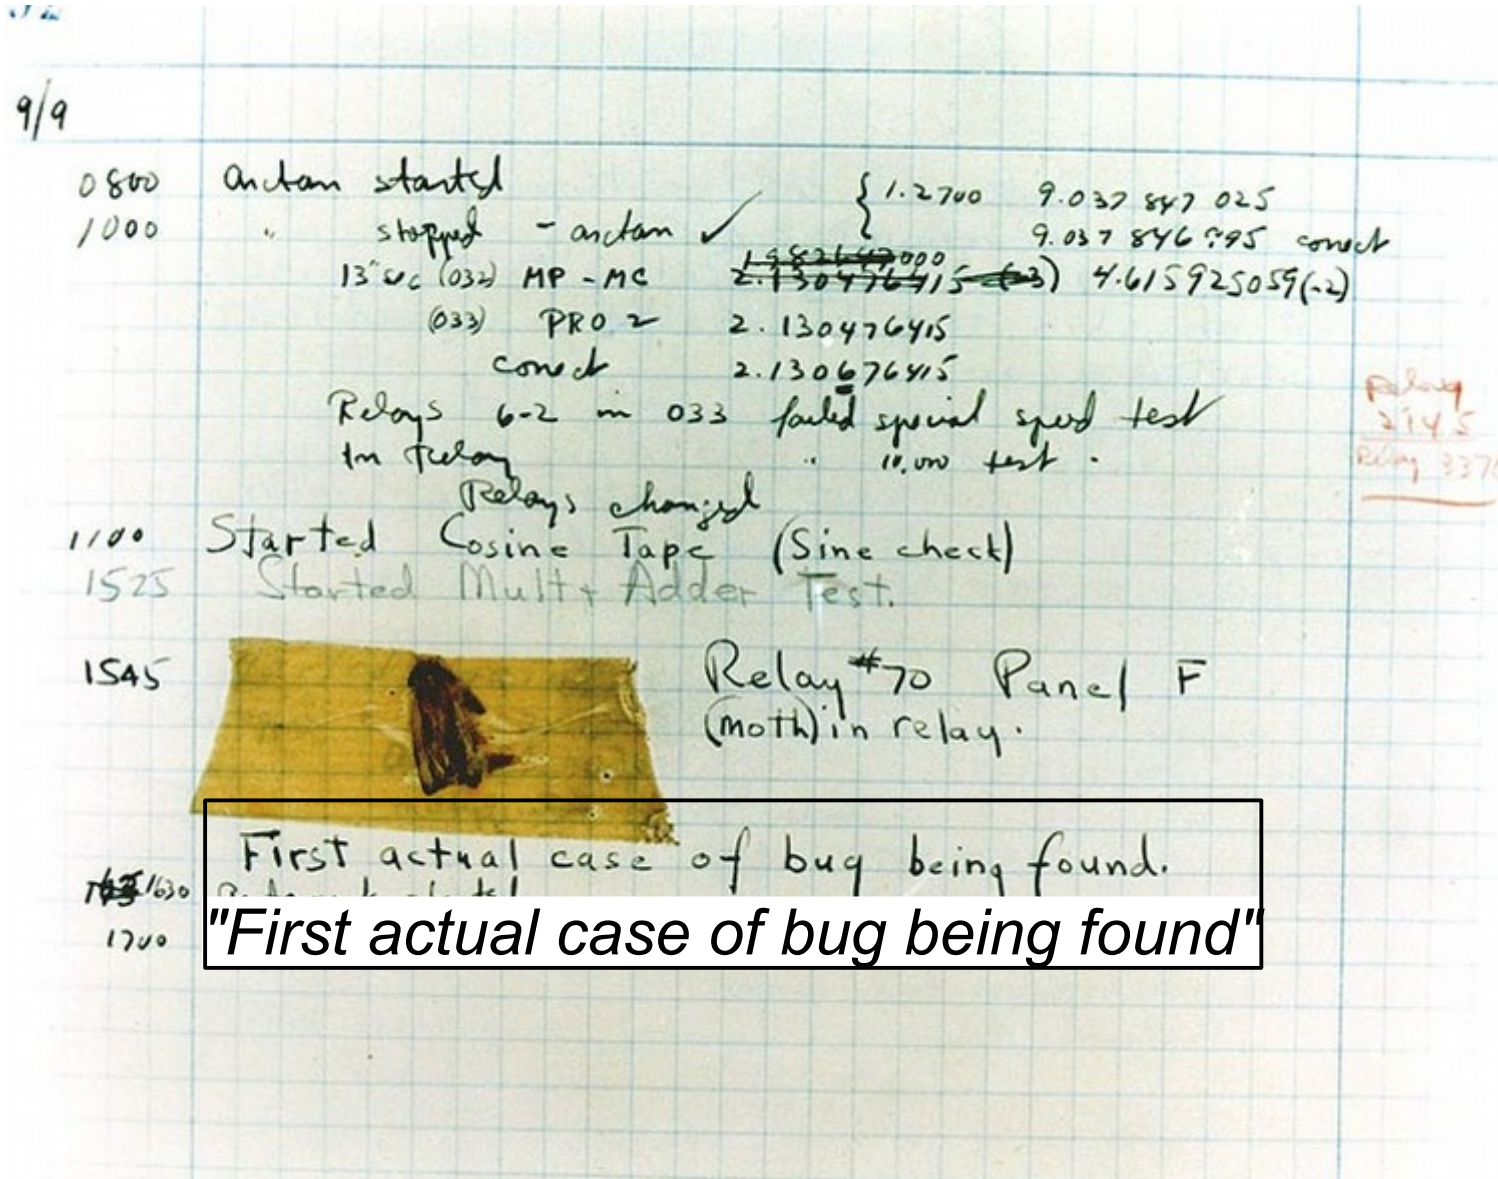 9/9
0800 arctan started { 1.2700 9.037 847 025
1000 " stopped - arctan ✓ 9.037 846 995 correct
000
13" sec (032) MP - MC 2.130476415 (-3) 4.615925059(-2)
(033) PRO 2 2.130476415
correct 2.130676415
Relays 6-2 in 033 failed special speed test
In Relay " 10.000 test .
Relay
2145
Relay 337
Relays changed
1100 Started Cosine Tape (Sine check)
1525 Started Mult + Adder Test.
1545 Relay #70 Panel F
(moth) in relay.
First actual case of bug being found.
1630
"First actual case of bug being found"
1700